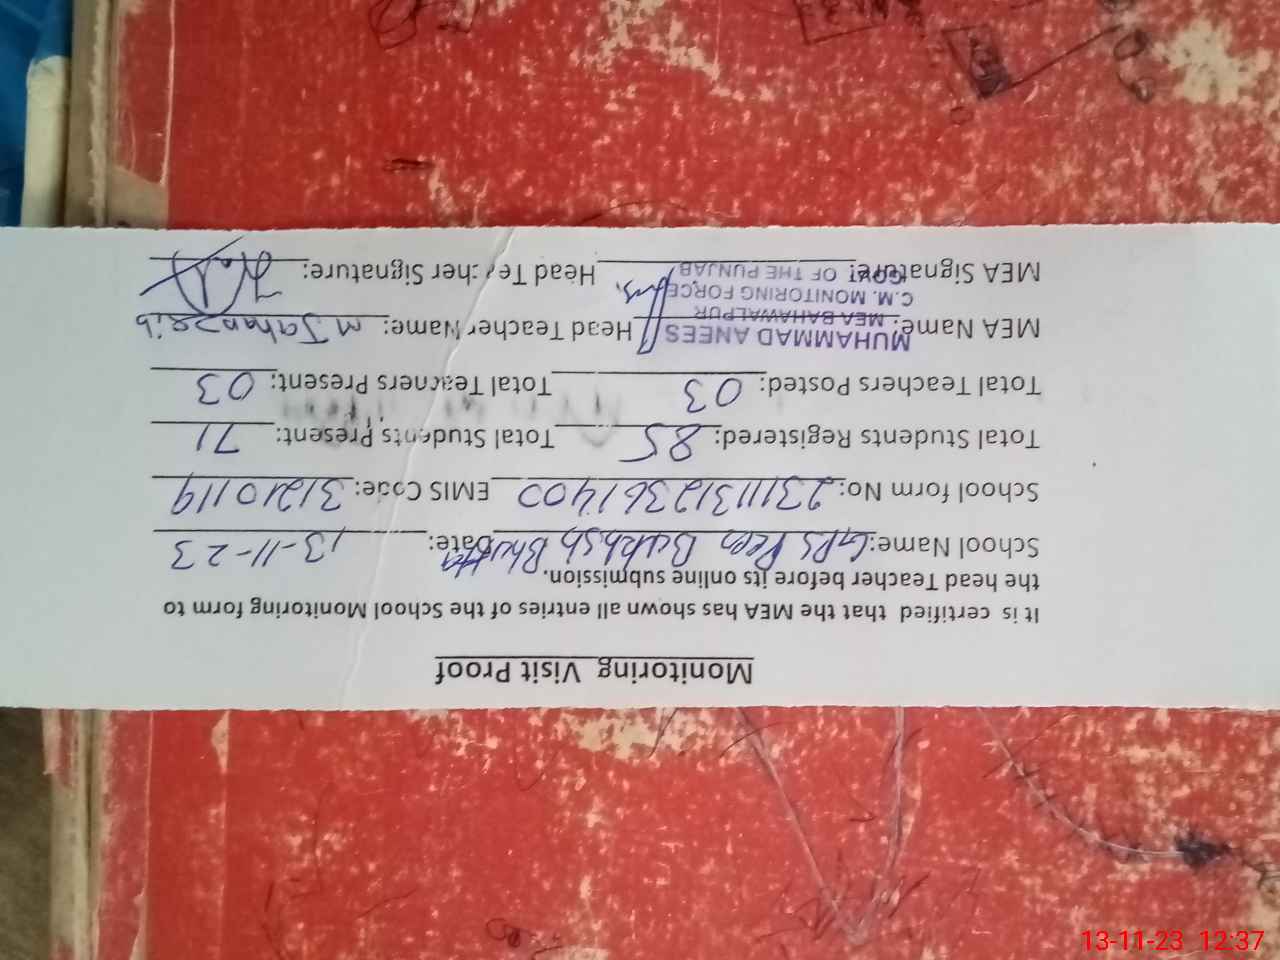 Monitoring Visit Proof
It is certified that the MEA has shown all entries of the School Monitoring form to
the head Teacher before its online submission.
School Name: GPS Peer Bukhsh Bhutta Date: 13-11-23
School form No: 23111312361400 EMIS Code: 31210119
Total Students Registered: 85 Total Students Present: 71
Total Teachers Posted: 03 Total Teachers Present: 03
MEA Name: MUHAMMAD ANEES Head Teacher Name: M Jahanzaib
MEA BAHAWALPUR
C.M. MONITORING FORCE
MEA Signature: GOVT OF THE PUNJAB Head Teacher Signature:
13-11-23 12:37